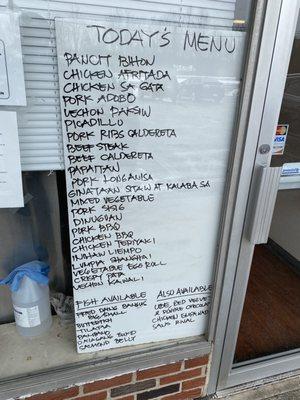 TODAY'S MENU
PANCIT BIHON
CHICKEN AFRITADA
CHICKEN SA GATA
PORK ADOBO
LECHON PAKSIW
PICADILLO
PORK RIBS CALDERETA
BEEF STEAK
BEEF CALDERETA
PAPAITAN
PORK LONGANISA
GINATAAN SITAW AT KALABASA
MIXED VEGETABLE
PORK SISIG
DINUGUAN
PORK BBQ
CHICKEN BBQ
CHICKEN TERIYAKI
INIHAW LIEMPO
LUMPIA SHANGHAI
VEGETABLE EGG ROLL
CRISPY PATA
LECHON KAWALI
FISH AVAILABLE
BIG/SMALL
BUTTERFISH
TILAPIA
PAMPANO
SALMON BELLY
ALSO AVAILABLE
UBE, RED VELVET
VISA